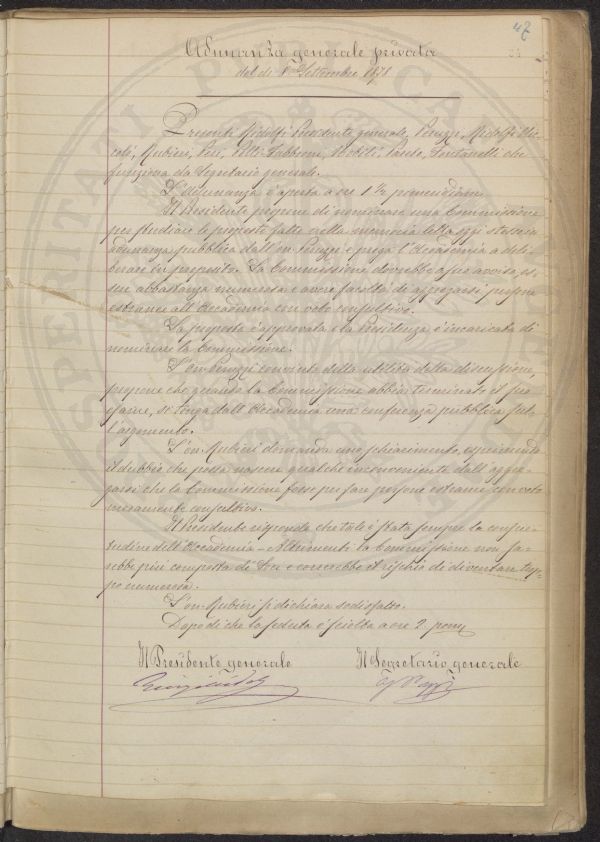 47
34
Adunanza generale privata
del dì 1° Settembre 1878
Presenti Ridolfi Presidente generale, Peruzzi, Ridolfi
Rubieri, Pelli-Fabbroni, Fontanelli che
funziona da Segretario generale.
L'Adunanza è aperta a ore 1½ pomeridiane
Il Presidente propone di nominare una Commissione
per studiare le proposte fatte nella memoria letta oggi stesso in
adunanza pubblica dall'on. Peruzzi e prega l'Accademia a deli-
berare in proposito. La Commissione dovrebbe a suo avviso, es-
sere abbastanza numerosa e avere facoltà di aggregarsi persone
estranee all'Accademia con voto consultivo.
La proposta è approvata e la Presidenza è incaricata di
nominare la Commissione.
L'on. Peruzzi convinto della utilità della discussione,
propone che quando la Commissione abbia terminato il suo
esame, si tenga dall'Accademia una conferenza pubblica sul-
l'argomento.
L'on. Rubieri domanda uno schiarimento, esprimendo
il dubbio che possa nascere qualche inconveniente dall'aggre-
garsi che la Commissione fosse per fare persone estranee con voto
meramente consultivo.
Il Presidente risponde che tale è stata sempre la consue-
tudine dell'Accademia - Altrimenti la Commissione non sa-
rebbe più composta di Soci e correrebbe il rischio di diventare trop-
po numerosa.
L'on. Rubieri si dichiara sodisfatto.
Dopo di che la seduta è sciolta a ore 2 pom.
Il Presidente generale Il Segretario generale